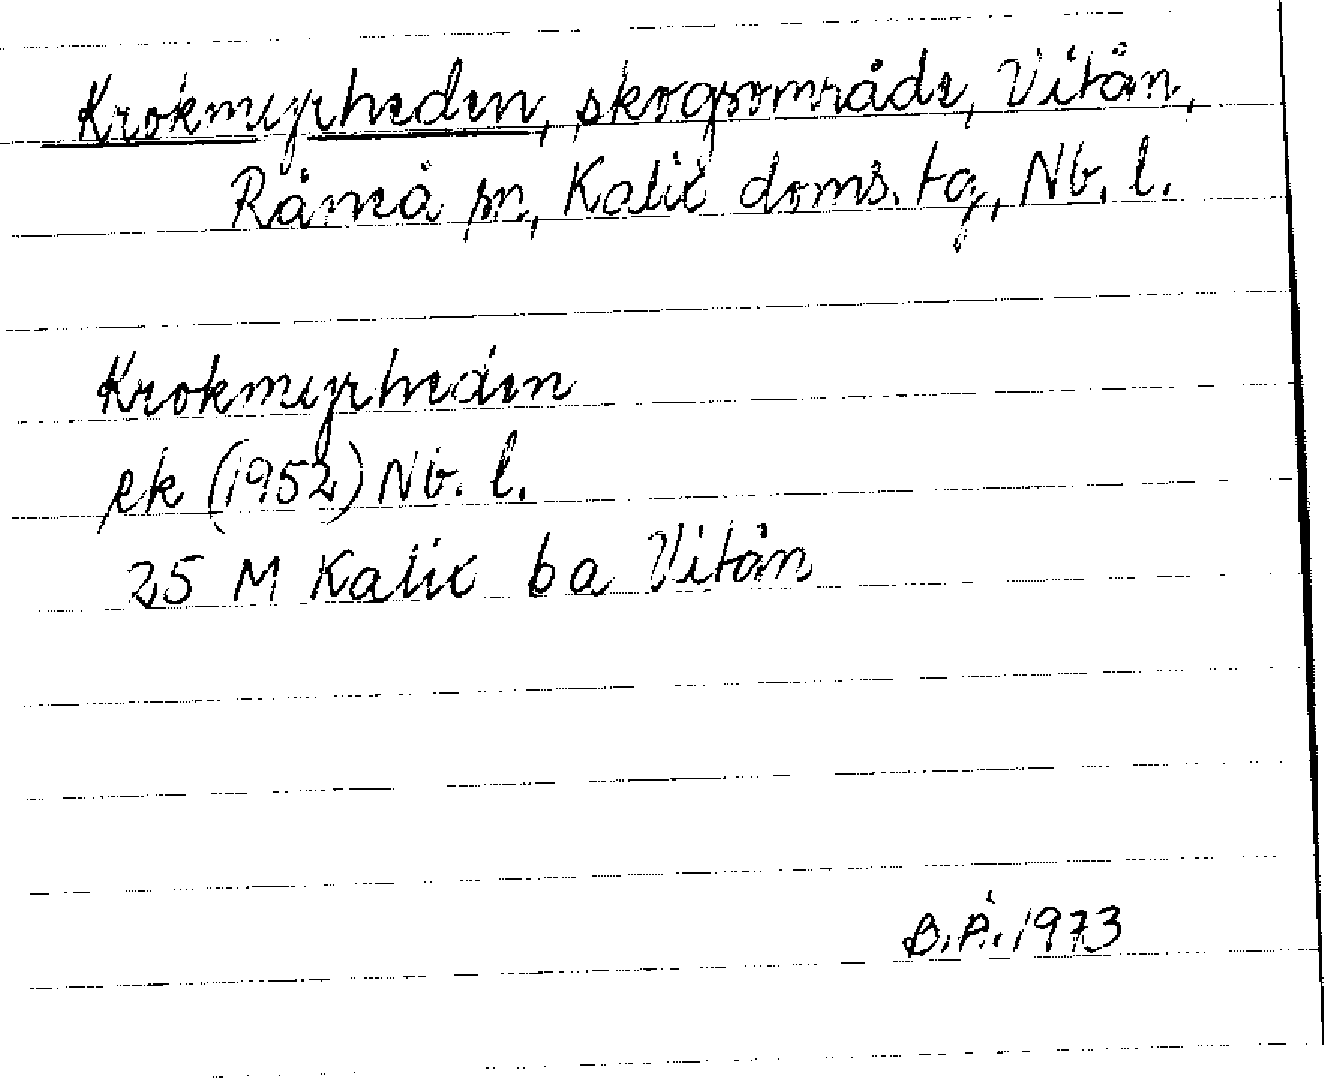 Krokmyrheden, skogsområde, Vitån,
Råneå sn, Kalix doms. tg, Nb. l.
Krokmyrheden
ek (1952) Nb. l.
25 M Kalix ba Vitån
B.Å. 1973